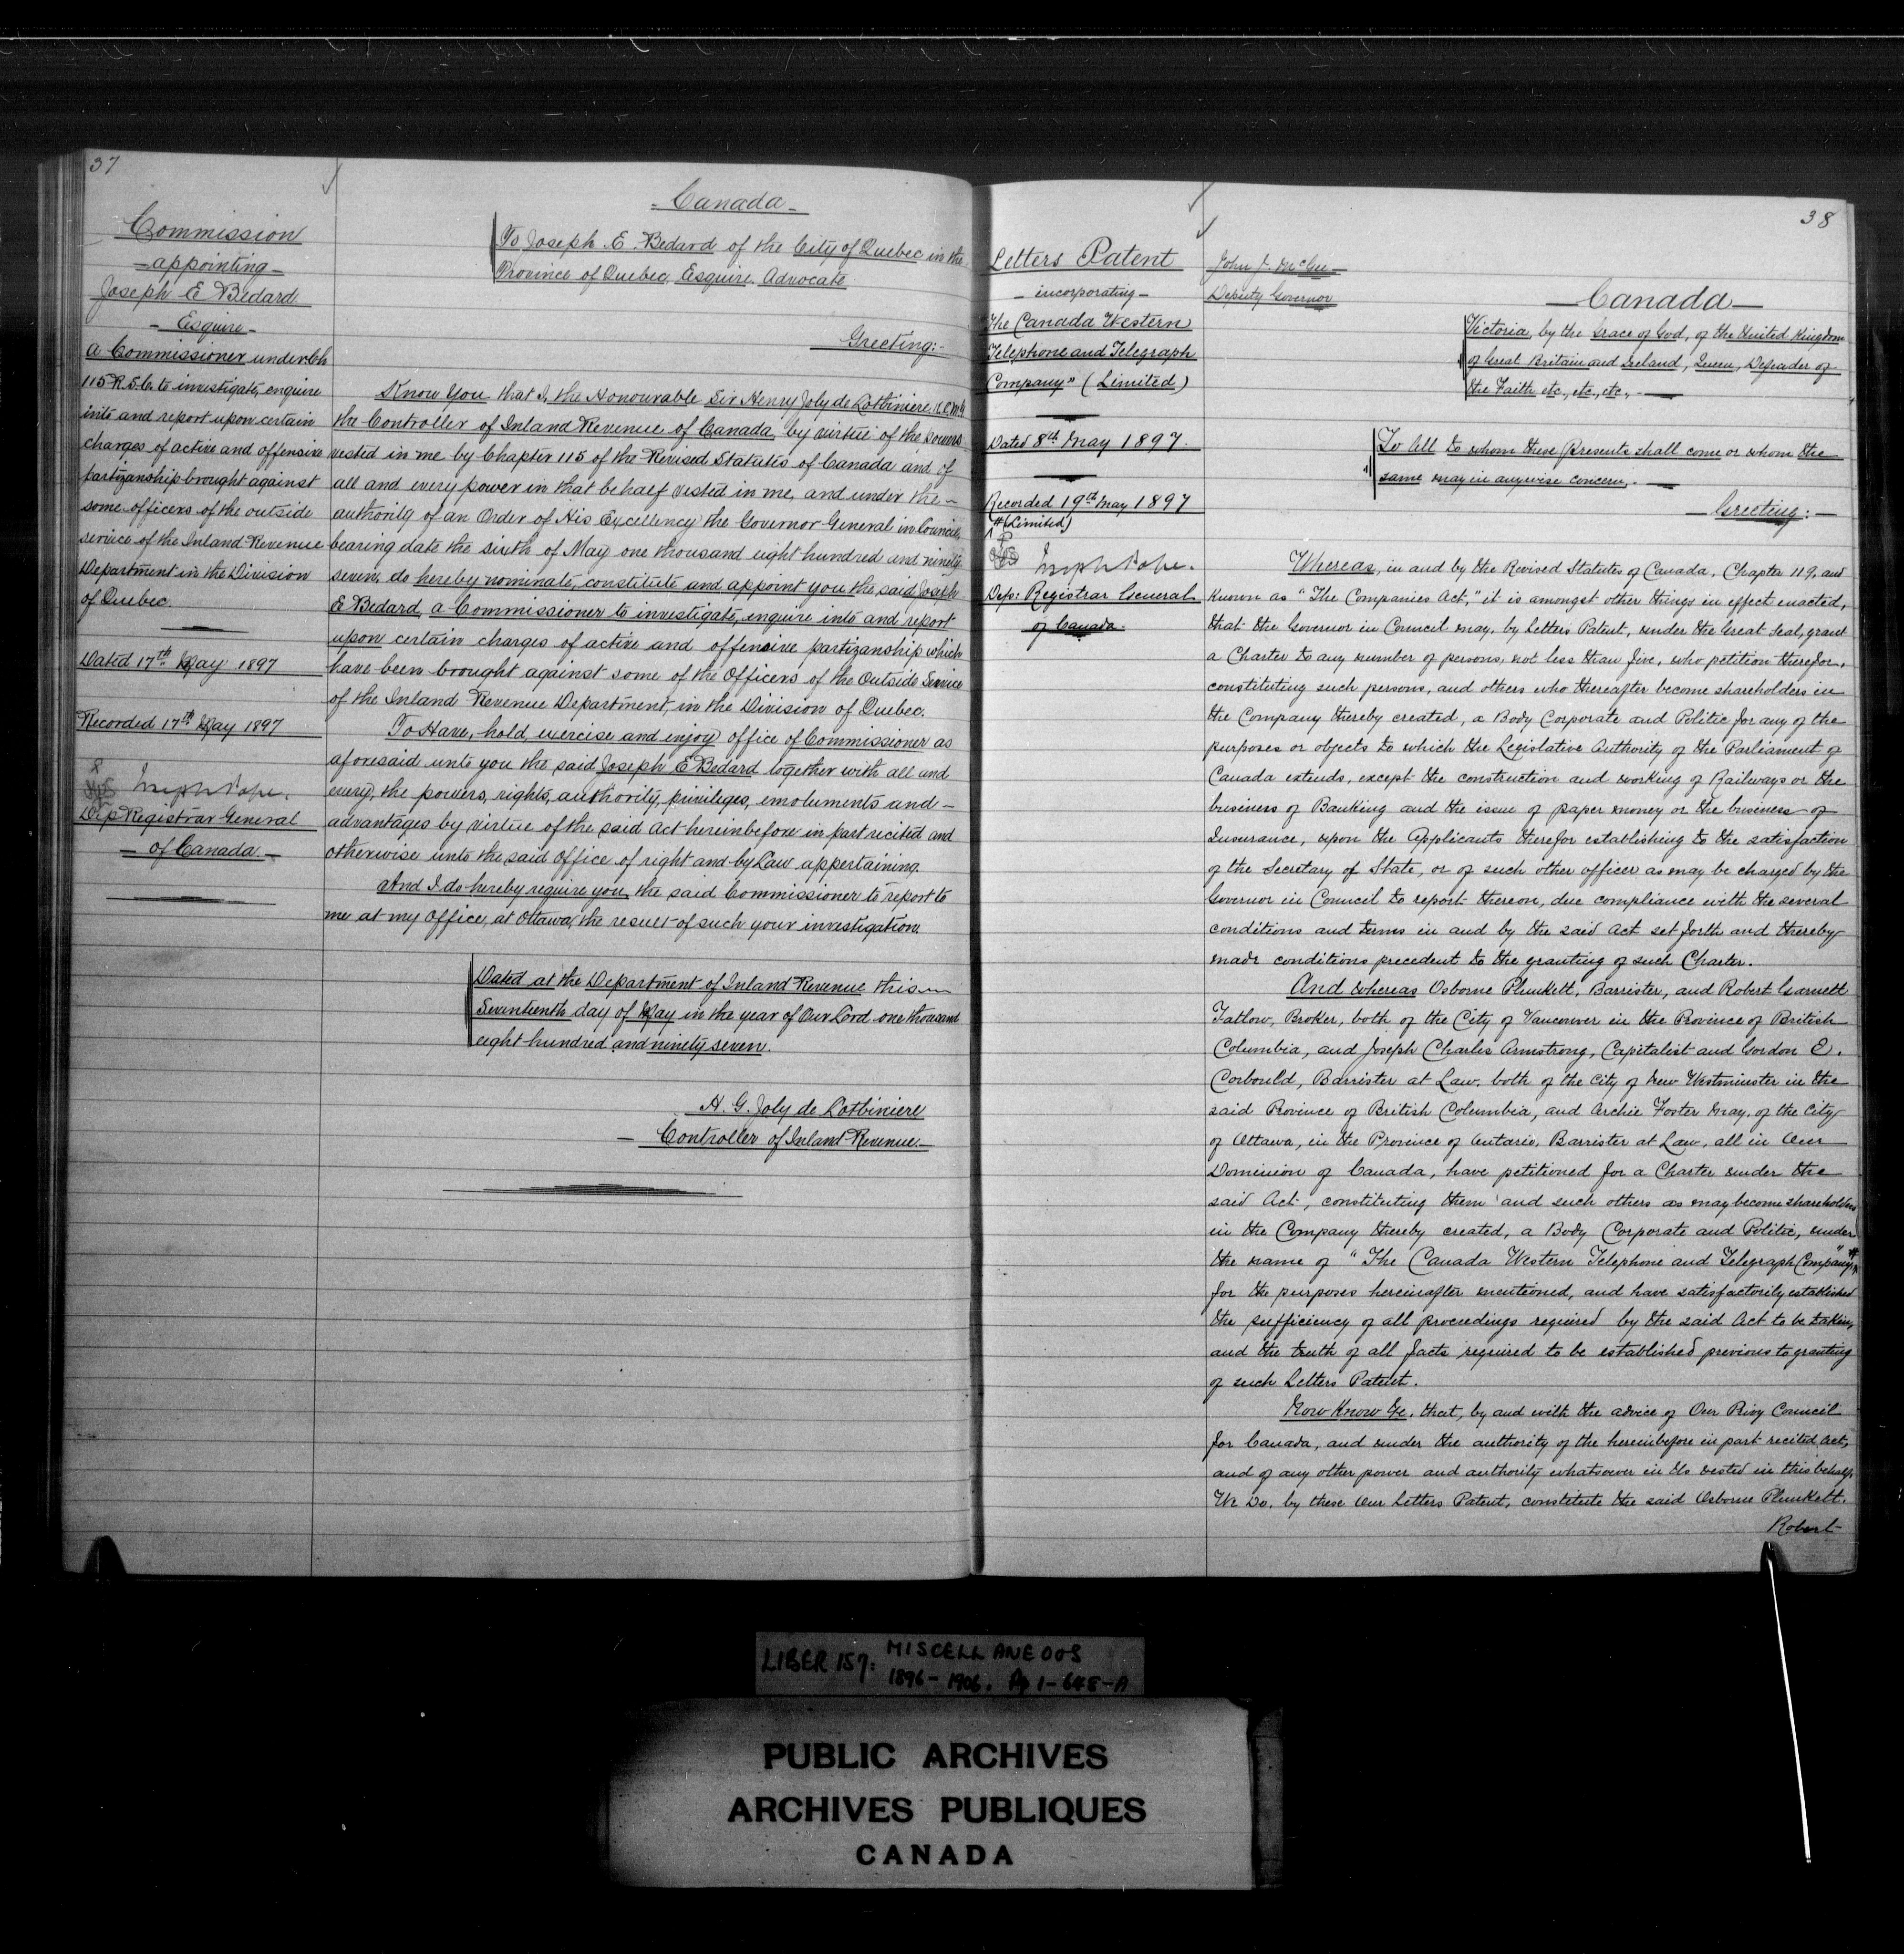 37
Commission
- appointing -
Joseph E Bedard
- Esquire -
a Commissioner under Ch
115 R.S.C. to investigate, enquire
into and report upon certain
charges of active and offensive
partizanship brought against
some officers of the outside
service of the Inland Revenue
Department in the Division
of Quebec.
Dated 17th May 1897
Recorded 17th May 1897
Joseph Pope.
Dep Registrar General
- of Canada. -
- Canada -
To Joseph E. Bedard of the City of Quebec in the
Province of Quebec, Esquire, Advocate
Greeting:-
Know You that I, the Honourable Sir Henry Joly de Lotbiniere, K.C.M.G.
the Controller of Inland Revenue of Canada, by virtue of the powers
vested in me by Chapter 115 of the Revised Statutes of Canada and of
all and every power in that behalf vested in me, and under the -
authority of an Order of His Excellency the Governor General in Council,
bearing date the sixth of May one thousand eight hundred and ninety
seven, do hereby nominate, constitute and appoint you the said Joseph
E Bedard, a Commissioner to investigate, enquire into and report
upon certain charges of active and offensive partizanship which
have been brought against some of the Officers of the Outside Service
of the Inland Revenue Department, in the Division of Quebec.
To Have, hold, exercise and enjoy office of Commissioner as
aforesaid unto you the said Joseph E Bedard together with all and
every, the powers, rights, authority, privileges, emoluments and -
advantages by virtue of the said Act hereinbefore in part recited and
otherwise unto the said Office of right and by Law appertaining.
And I do hereby require you, the said Commissioner to report to
me at my Office, at Ottawa, the result of such your investigation.
Dated at the Department of Inland Revenue this
Seventeenth day of May in the year of Our Lord one thousand
eight hundred and ninety seven.
H. G. Joly de Lotbiniere
- Controller of Inland Revenue. -
38
Letters Patent
- incorporating -
"The Canada Western
Telephone and Telegraph
Company" (Limited)
Dated 8th May 1897.
Recorded 19th May 1897
# (Limited)
Joseph Pope.
Dep: Registrar General
of Canada.
John J. McGee
Deputy Governor
- Canada -
Victoria, by the Grace of God, of the United Kingdom
of Great Britain and Ireland, Queen, Defender of
the Faith etc., etc., etc., -
To All to whom these Presents shall come or whom the
same may in anywise concern, -
- Greeting: -
Whereas, in and by the Revised Statutes of Canada, Chapter 119, and
known as "The Companies Act," it is amongst other things in effect enacted,
that the Governor in Council may, by Letters Patent, under the Great Seal, grant
a Charter to any number of persons, not less than five, who petition therefor,
constituting such persons, and others who thereafter become shareholders in
the Company thereby created, a Body Corporate and Politic for any of the
purposes or objects to which the Legislative Authority of the Parliament of
Canada extends, except the construction and working of Railways or the
business of Banking and the issue of paper money or the business of
Insurance, upon the Applicants therefor establishing to the satisfaction
of the Secretary of State, or of such other officer as may be charged by the
Governor in Council to report thereon, due compliance with the several
conditions and terms in and by the said Act set forth and thereby
made conditions precedent to the granting of such Charter.
And whereas Osborne Plunkett, Barrister, and Robert Garnett
Tatlow, Broker, both of the City of Vancouver in the Province of British
Columbia, and Joseph Charles Armstrong, Capitalist and Gordon E.
Corbould, Barrister at Law, both of the City of New Westminster in the
said Province of British Columbia, and Archie Foster May, of the City
of Ottawa, in the Province of Ontario, Barrister at Law, all in Our
Dominion of Canada, have petitioned for a Charter under the
said Act, constituting them and such others as may become shareholders
in the Company thereby created, a Body Corporate and Politic, under
the name of "The Canada Western Telephone and Telegraph Company" #
for the purposes hereinafter mentioned, and have satisfactorily established
the sufficiency of all proceedings required by the said Act to be taken,
and the truth of all facts required to be established previous to granting
of such Letters Patent.
Now Know Ye, that, by and with the advice of Our Privy Council
for Canada, and under the authority of the hereinbefore in part recited Act,
and of any other power and authority whatsoever in Us vested in this behalf,
We Do, by these Our Letters Patent, constitute the said Osborne Plunkett,
Robert
LIBER 157: MISCELLANEOUS
1896-1906. Pp 1-648-A
PUBLIC ARCHIVES
ARCHIVES PUBLIQUES
CANADA